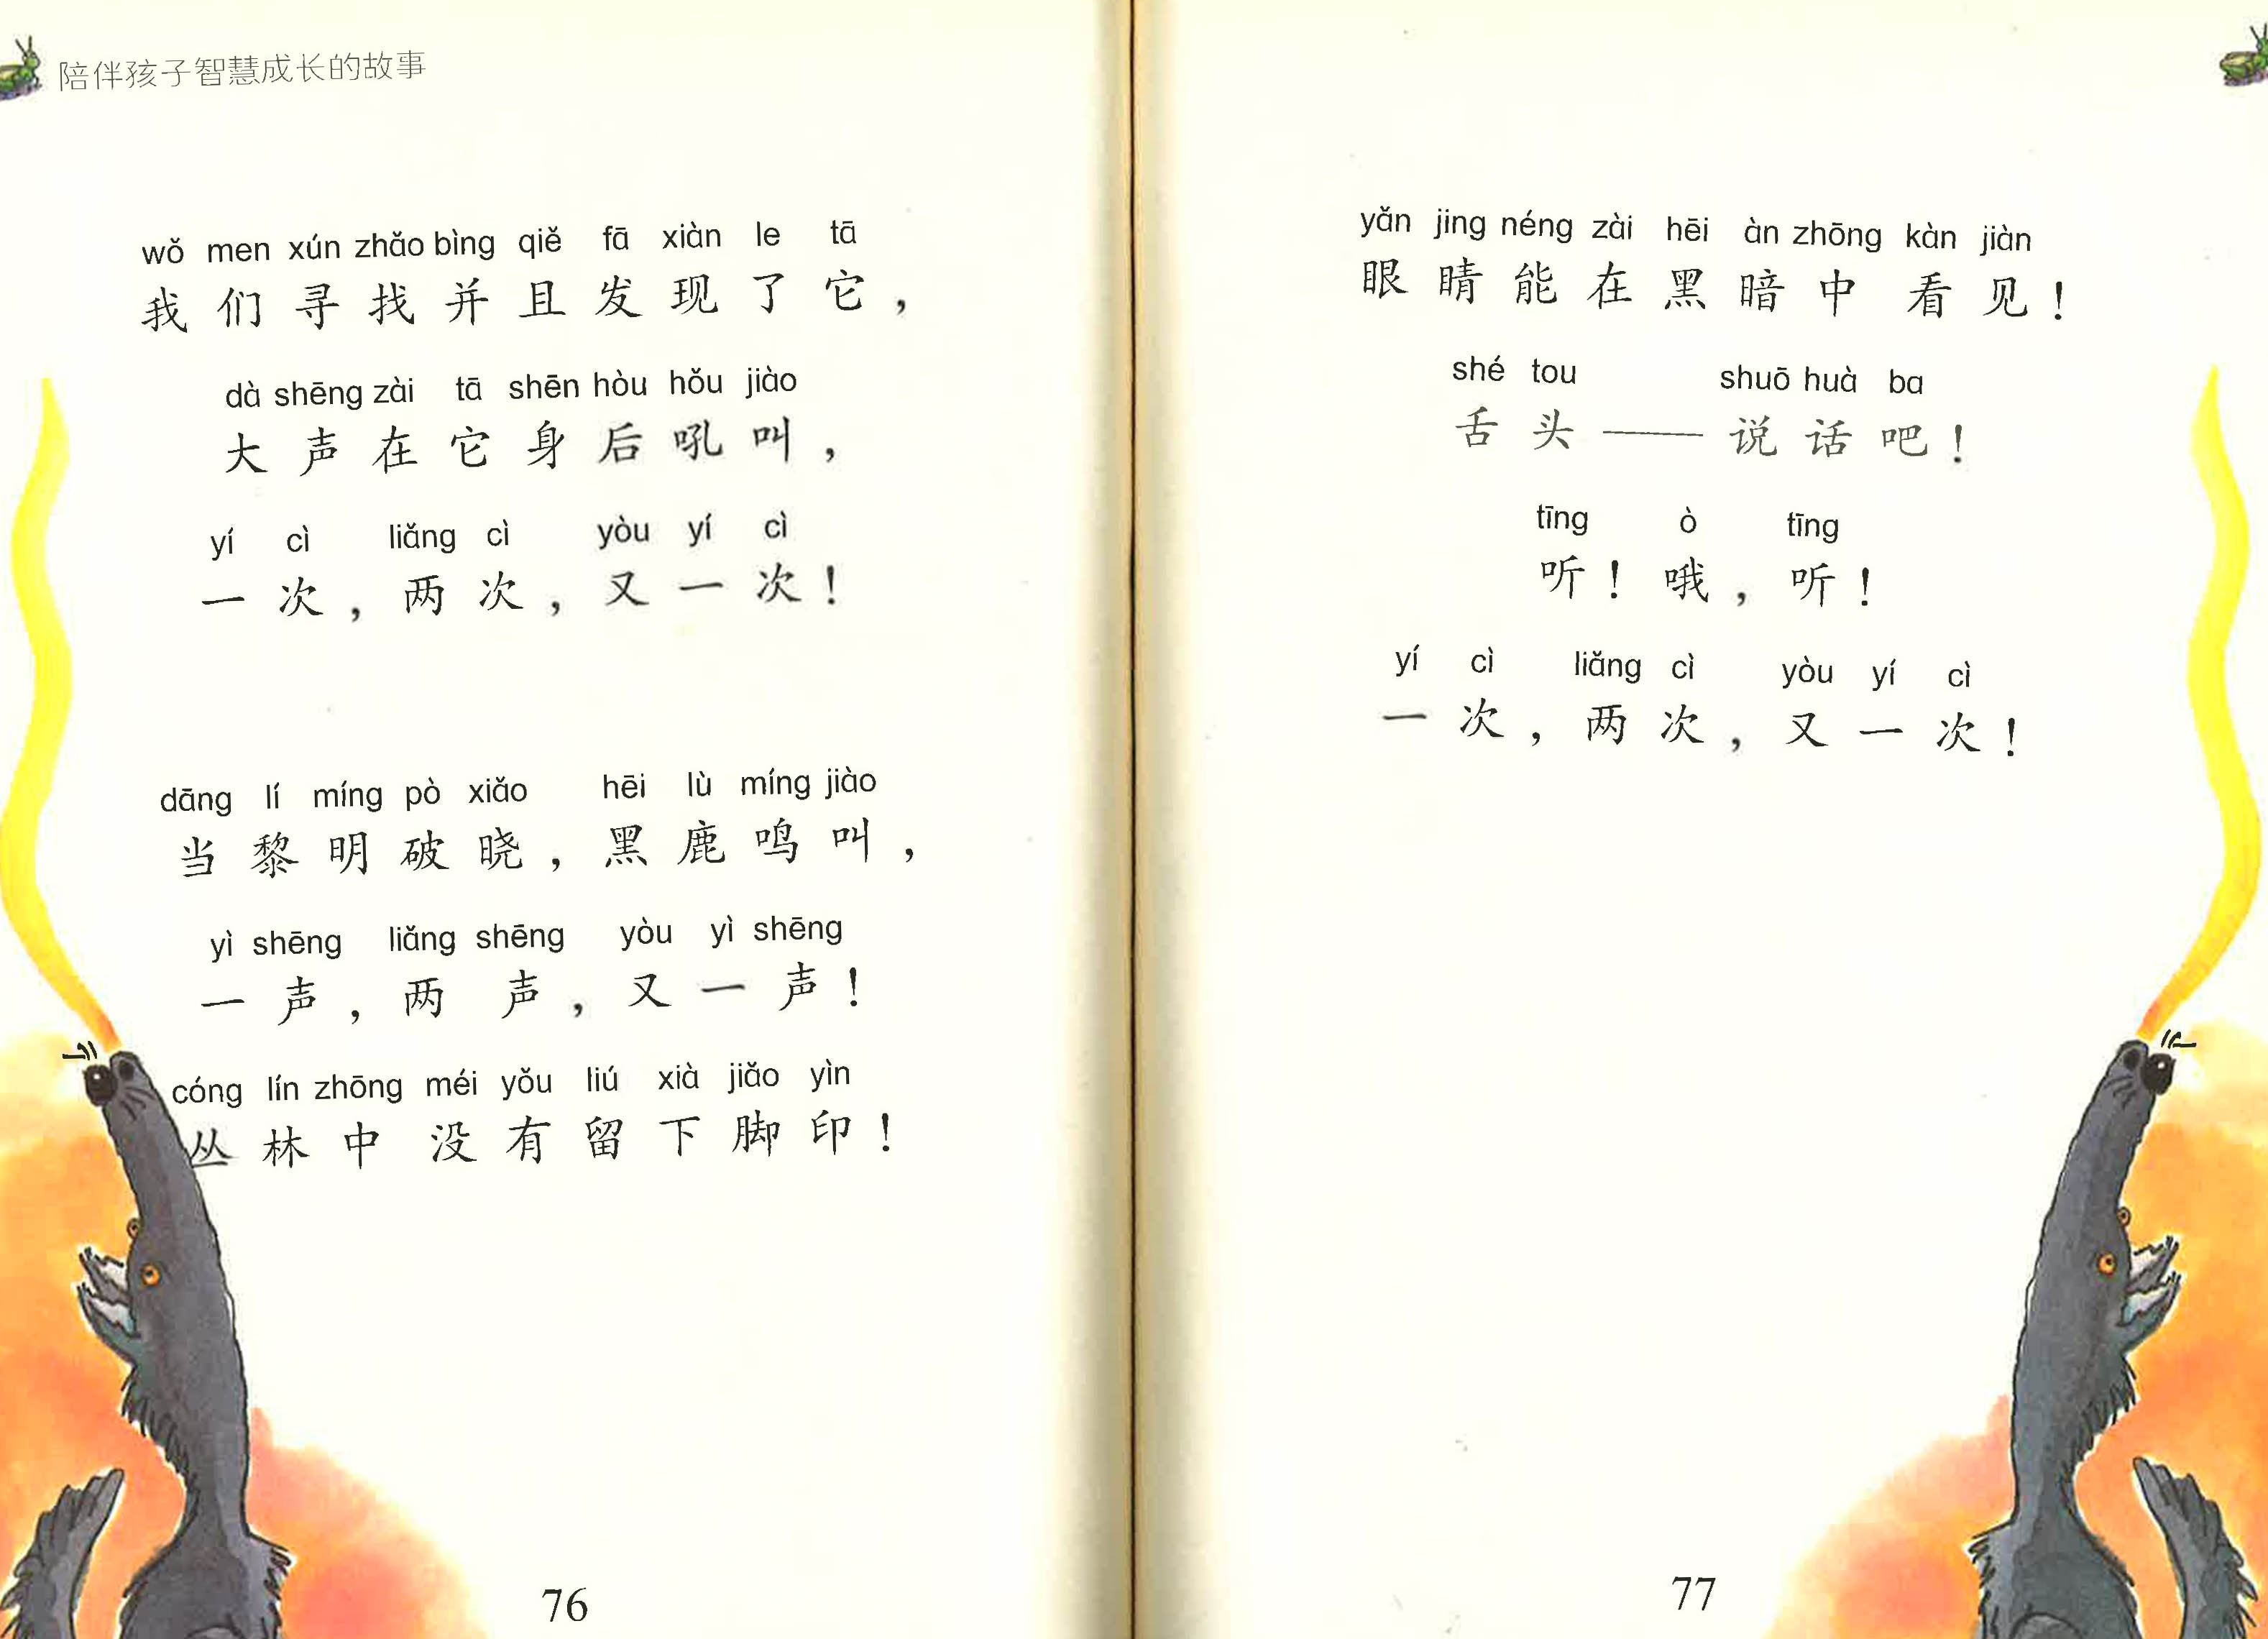 陪伴孩子智慧成长的故事
wǒ men xún zhǎo bìng qiě fā xiàn le tā
我们寻找并且发现了它，
dà shēng zài tā shēn hòu hǒu jiào
大声在它身后吼叫，
yí cì liǎng cì yòu yí cì
一次，两次，又一次！
dāng lí míng pò xiǎo hēi lù míng jiào
当黎明破晓，黑鹿鸣叫，
yì shēng liǎng shēng yòu yì shēng
一声，两声，又一声！
cóng lín zhōng méi yǒu liú xià jiǎo yìn
丛林中没有留下脚印！
76
yǎn jing néng zài hēi àn zhōng kàn jiàn
眼睛能在黑暗中看见！
shé tou shuō huà ba
舌头——说话吧！
tīng ò tīng
听！哦，听！
yí cì liǎng cì yòu yí cì
一次，两次，又一次！
77